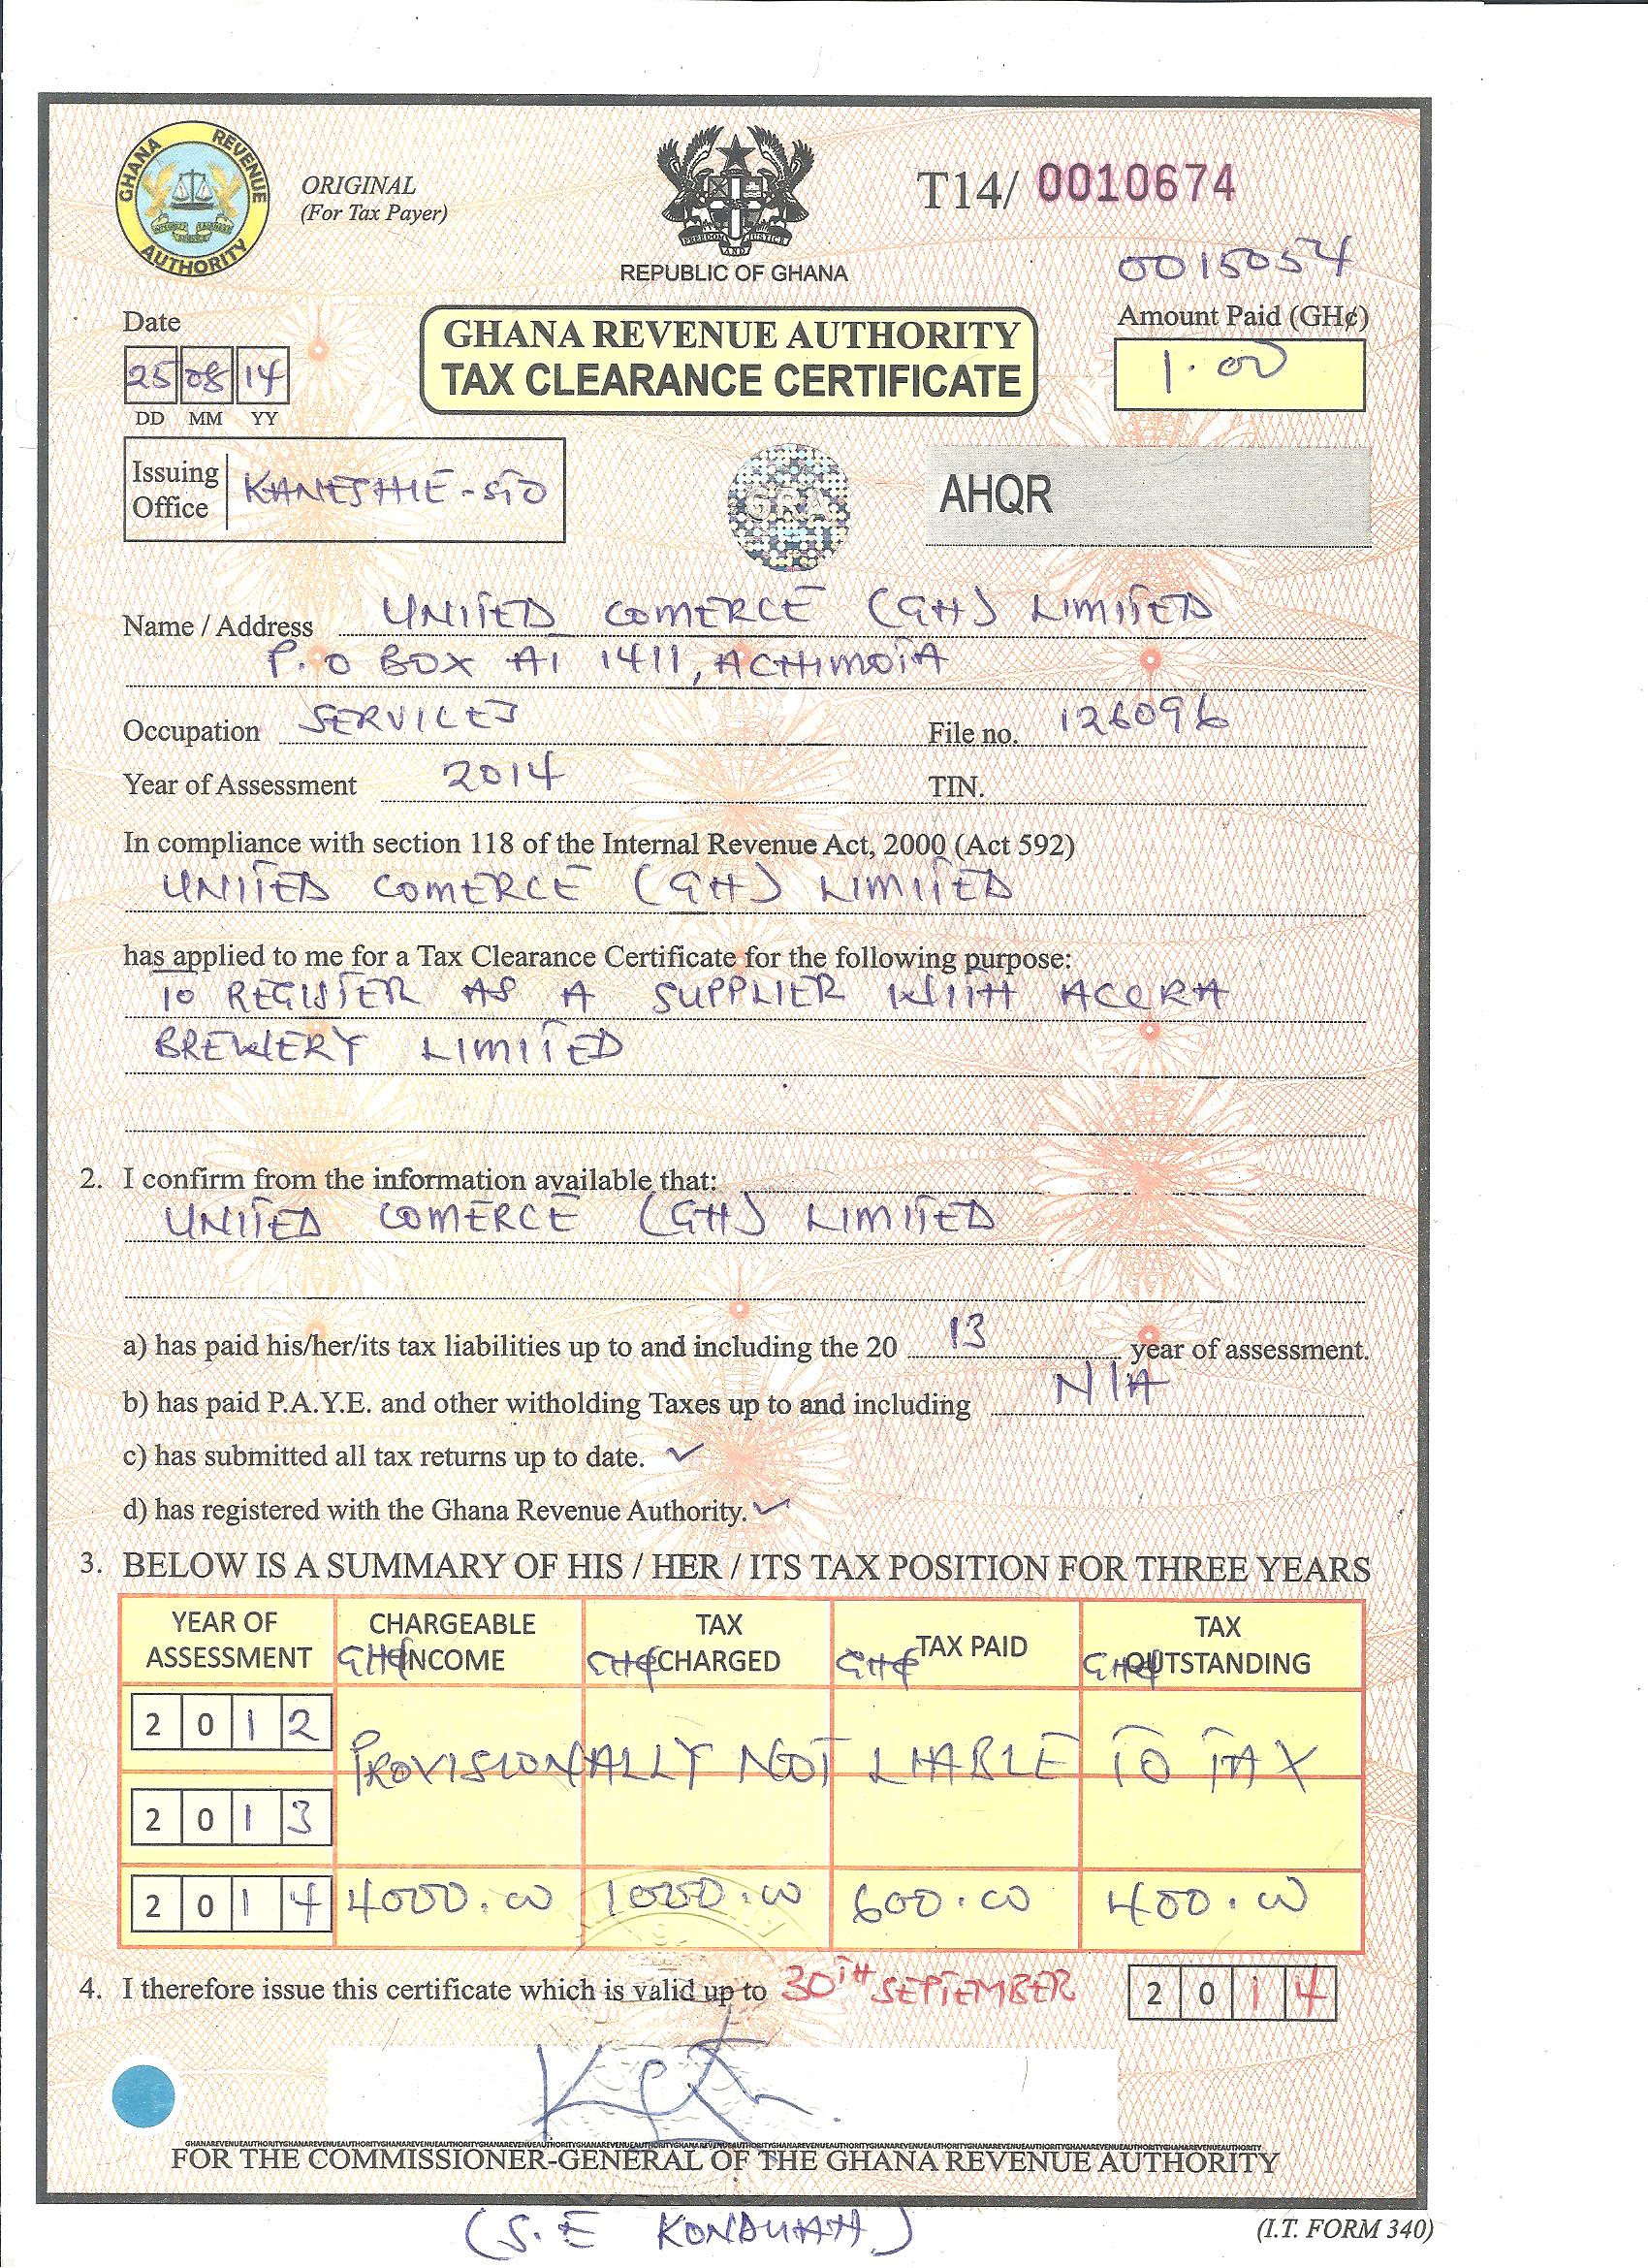 GHANA REVENUE AUTHORITY
ORIGINAL
(For Tax Payer)
FREEDOM AND JUSTICE
REPUBLIC OF GHANA
T14/ 0010674
0015054
Date
25 08 14
DD MM YY
GHANA REVENUE AUTHORITY
TAX CLEARANCE CERTIFICATE
Amount Paid (GH¢)
1.00
Issuing
Office
KANESHIE - STO
GRA
AHQR
Name / Address UNITED COMERCE (GH) LIMITED
P.O BOX AT 1411, ACHIMOTA
Occupation SERVICES File no. 126096
Year of Assessment 2014 TIN.
In compliance with section 118 of the Internal Revenue Act, 2000 (Act 592)
UNITED COMERCE (GH) LIMITED
has applied to me for a Tax Clearance Certificate for the following purpose:
TO REGISTER AS A SUPPLIER WITH ACCRA
BREWERY LIMITED
2. I confirm from the information available that:
UNITED COMERCE (GH) LIMITED
a) has paid his/her/its tax liabilities up to and including the 20 13 year of assessment.
b) has paid P.A.Y.E. and other witholding Taxes up to and including N/A
c) has submitted all tax returns up to date. ✓
d) has registered with the Ghana Revenue Authority. ✓
3. BELOW IS A SUMMARY OF HIS / HER / ITS TAX POSITION FOR THREE YEARS
YEAR OF ASSESSMENT CHARGEABLE INCOME GH¢ TAX CHARGED GH¢ TAX PAID GH¢ TAX OUTSTANDING GH¢
2012
PROVISIONALLY NOT LIABLE TO TAX
2013
2014 4000.00 1000.00 600.00 400.00
4. I therefore issue this certificate which is valid up to 30TH SEPTEMBER 2014
GHANAREVENUEAUTHORITYGHANAREVENUEAUTHORITYGHANAREVENUEAUTHORITYGHANAREVENUEAUTHORITYGHANAREVENUEAUTHORITYGHANAREVENUEAUTHORITY
FOR THE COMMISSIONER-GENERAL OF THE GHANA REVENUE AUTHORITY
(S.E KONDUAH)
(I.T. FORM 340)